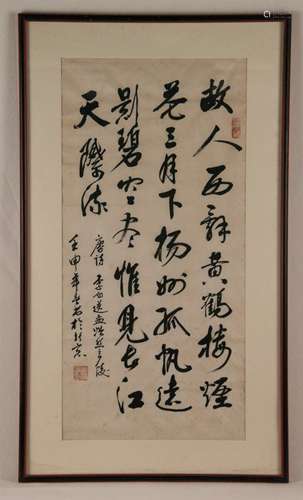 故人西辞黄鶴楼煙
花三月下揚州孤帆遠
影碧空盡惟見長江
天際流
唐詩李白送孟浩然之廣陵
壬申年